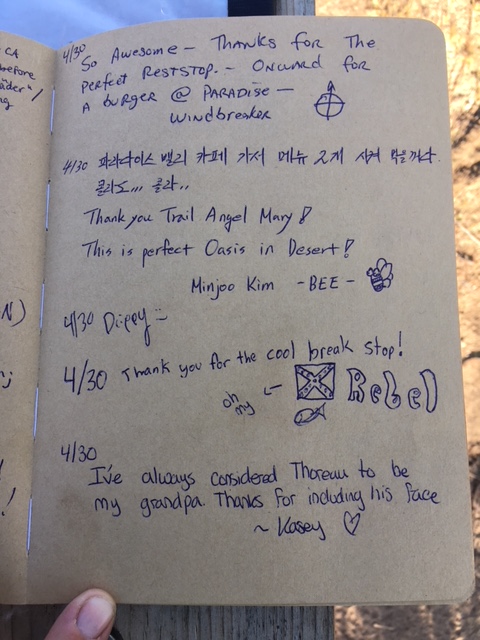 CA
before
4/30
So Awesome — Thanks for The
Perfect Reststop. — Onward for
A burger @ Paradise —
Windbreaker
4/30 파라다이스 밸리 카페 가서 메뉴 2개 시켜 먹을꺼다.
콜라도,,, 콜라,,
Thank you Trail Angel Mary!
This is perfect Oasis in Desert!
Minjoo Kim - BEE -
N)
4/30
4/30 Thank you for the cool break stop!
oh my ← Rebel
4/30
I've always considered Thoreau to be
my grandpa. Thanks for including his face
~ Kasey ♡